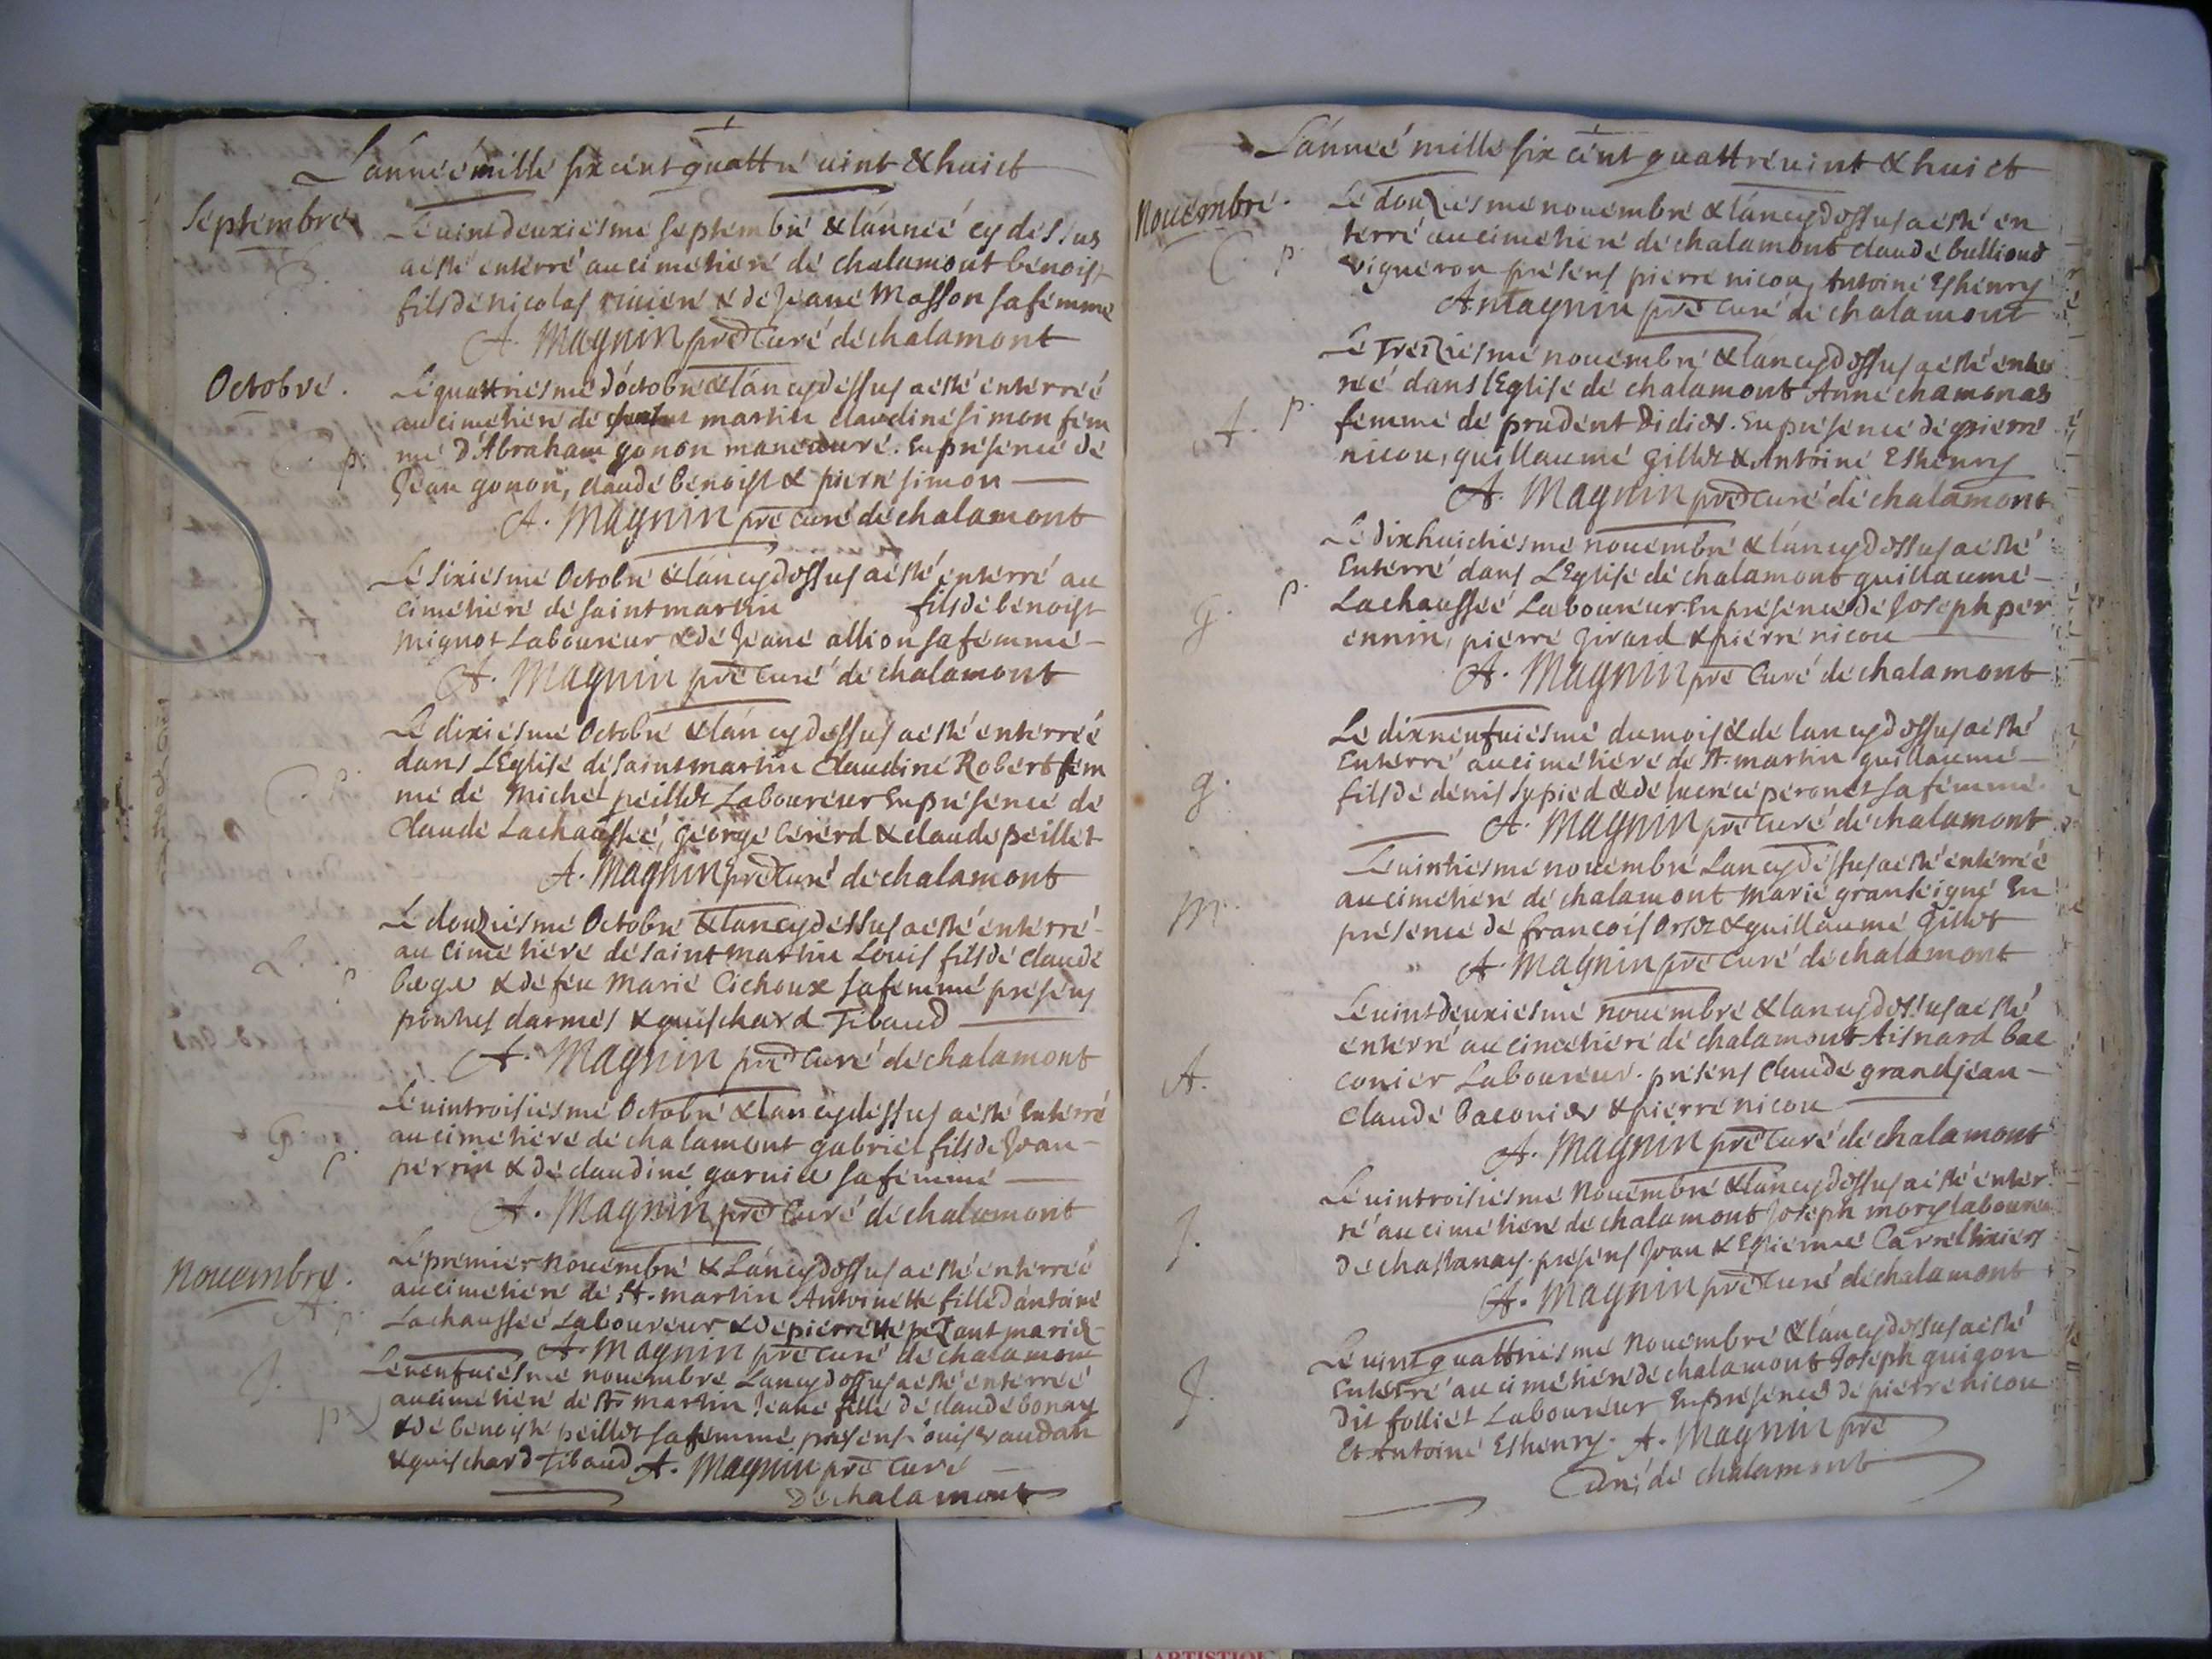 L'année mille six cent quattre vint & huict
Septembre
Le vint deuxiesme septembre & l'année cy dessus
a esté enterré au cimetiere de chalamont benoist
fils de nicolas rivière & de Jeane Masson sa femme
A. Magnin pre Curé de chalamont
Octobre.
Le quattriesme d'octobre & l'an cy dessus a esté enterreé
au cimetiere de martin claudine simon fem
me d'Abraham gonon manœuvre. En presence de
p.
Jean gonon, claude benoist & pierre simon
A. Magnin pre curé de chalamont
Le sixiesme Octobre & l'an cy dessus a esté enterré au
cimetiere de saint martin fils de benoist
mignot Laboureur & de Jeane allion sa femme
A. Magnin pre Curé de chalamont
Le dixiesme Octobre & l'an cy dessus a esté enterreé
dans L'Eglise de saint martin Claudine Robert fem
C. p.
me de Michel peillet Laboureur En presence de
Claude Lachaussee, George Gererd & claude peillet
A. Magnin pre Curé de chalamont
Le douziesme Octobre & l'an cy dessus a esté enterré
au Cimetiere de saint martin Louis fils de claude
L. p.
& de feu Marie Cichoux sa femme presens
darmes & guischard Tibaud
A. Magnin pre Curé de chalamont
Le vintroisiesme Octobre & l'an cy dessus a esté Enterré
au cimetiere de chalamont gabriel fils de Jean
G. p.
perrin & de claudine garnier sa femme
A. Magnin pre Curé de chalamont
Novembre.
Le premier Novembre & L'an cy dessus a esté enterreé
A.
au cimetiere de St. martin Antoinette fille d'antoine
p.
Lachausseé Laboureur & de pierrette pezant mariez
A. Magnin pre Curé de chalamont
Le neufviesme novembre L'an cy dessus a esté enterreé
J.
au cimetiere de St martin Jeane fille de claude bonay
p.
& de benoiste peillet sa femme presens Louis vaudan
& guischard Tibaud A. Magnin pre Curé
de chalamont
L'année mille six cent quattre vint & huict
Novembre.
Le douziesme novembre & l'an cy dessus a esté en
terré au cimetiere de chalamont claude bullioud
C. p.
vigneron presens pierre nicou, Antoine Eshenry
A Magnin pre Curé de chalamont
Le Treziesme novembre & l'an cy dessus a esté enter
reé dans l'Eglise de chalamont Anne chamonas
A. p.
femme de prudent Didier. En presence de pierre
nicou, guillaume gillet & Antoine Eshenry
A. Magnin pre Curé de chalamont
Le dixhuictiesme novembre & l'an cy dessus a esté
Enterré dans L'Eglise de chalamont guillaume
g. p.
Lachausseé Laboureur. En presence de Joseph per
ennin, pierre Girard & pierre nicou
A. Magnin pre Curé de chalamont
Le dixneufviesme du mois & de l'an cy dessus a esté
Enterré au cimetiere de St. martin guillaume
g.
fils de denis sypied & de lucrece peronet sa femme.
A. Magnin pre Curé de chalamont
Le vintiesme novembre L'an cy dessus a esté enterreé
m.
au cimetiere de chalamont Marie granseigne En
presence de francois Orset & guillaume Gillet
A. Magnin pre Curé de chalamont
Le vint deuxiesme novembre & l'an cy dessus a esté
enterré au cimetiere de chalamont Aisnard bac
A.
conier Laboureur. presens Claude grandjean
Claude baconier & pierre nicou
A. Magnin pre Curé de chalamont
Le vintroisiesme Novembre & l'an cy dessus a esté enter
J.
ré au cimetiere de chalamont Joseph mory laboureur
de chastanay. presens Jean & Estienne Carrel
A. Magnin pre Curé de chalamont
Le vint quattriesme Novembre & l'an cy dessus a esté
J.
Enterré au cimetiere de chalamont Joseph guigon
dit folliet Laboureur En presence de pierre nicou
Et Antoine Eshenry. A. Magnin pre
Curé de chalamont